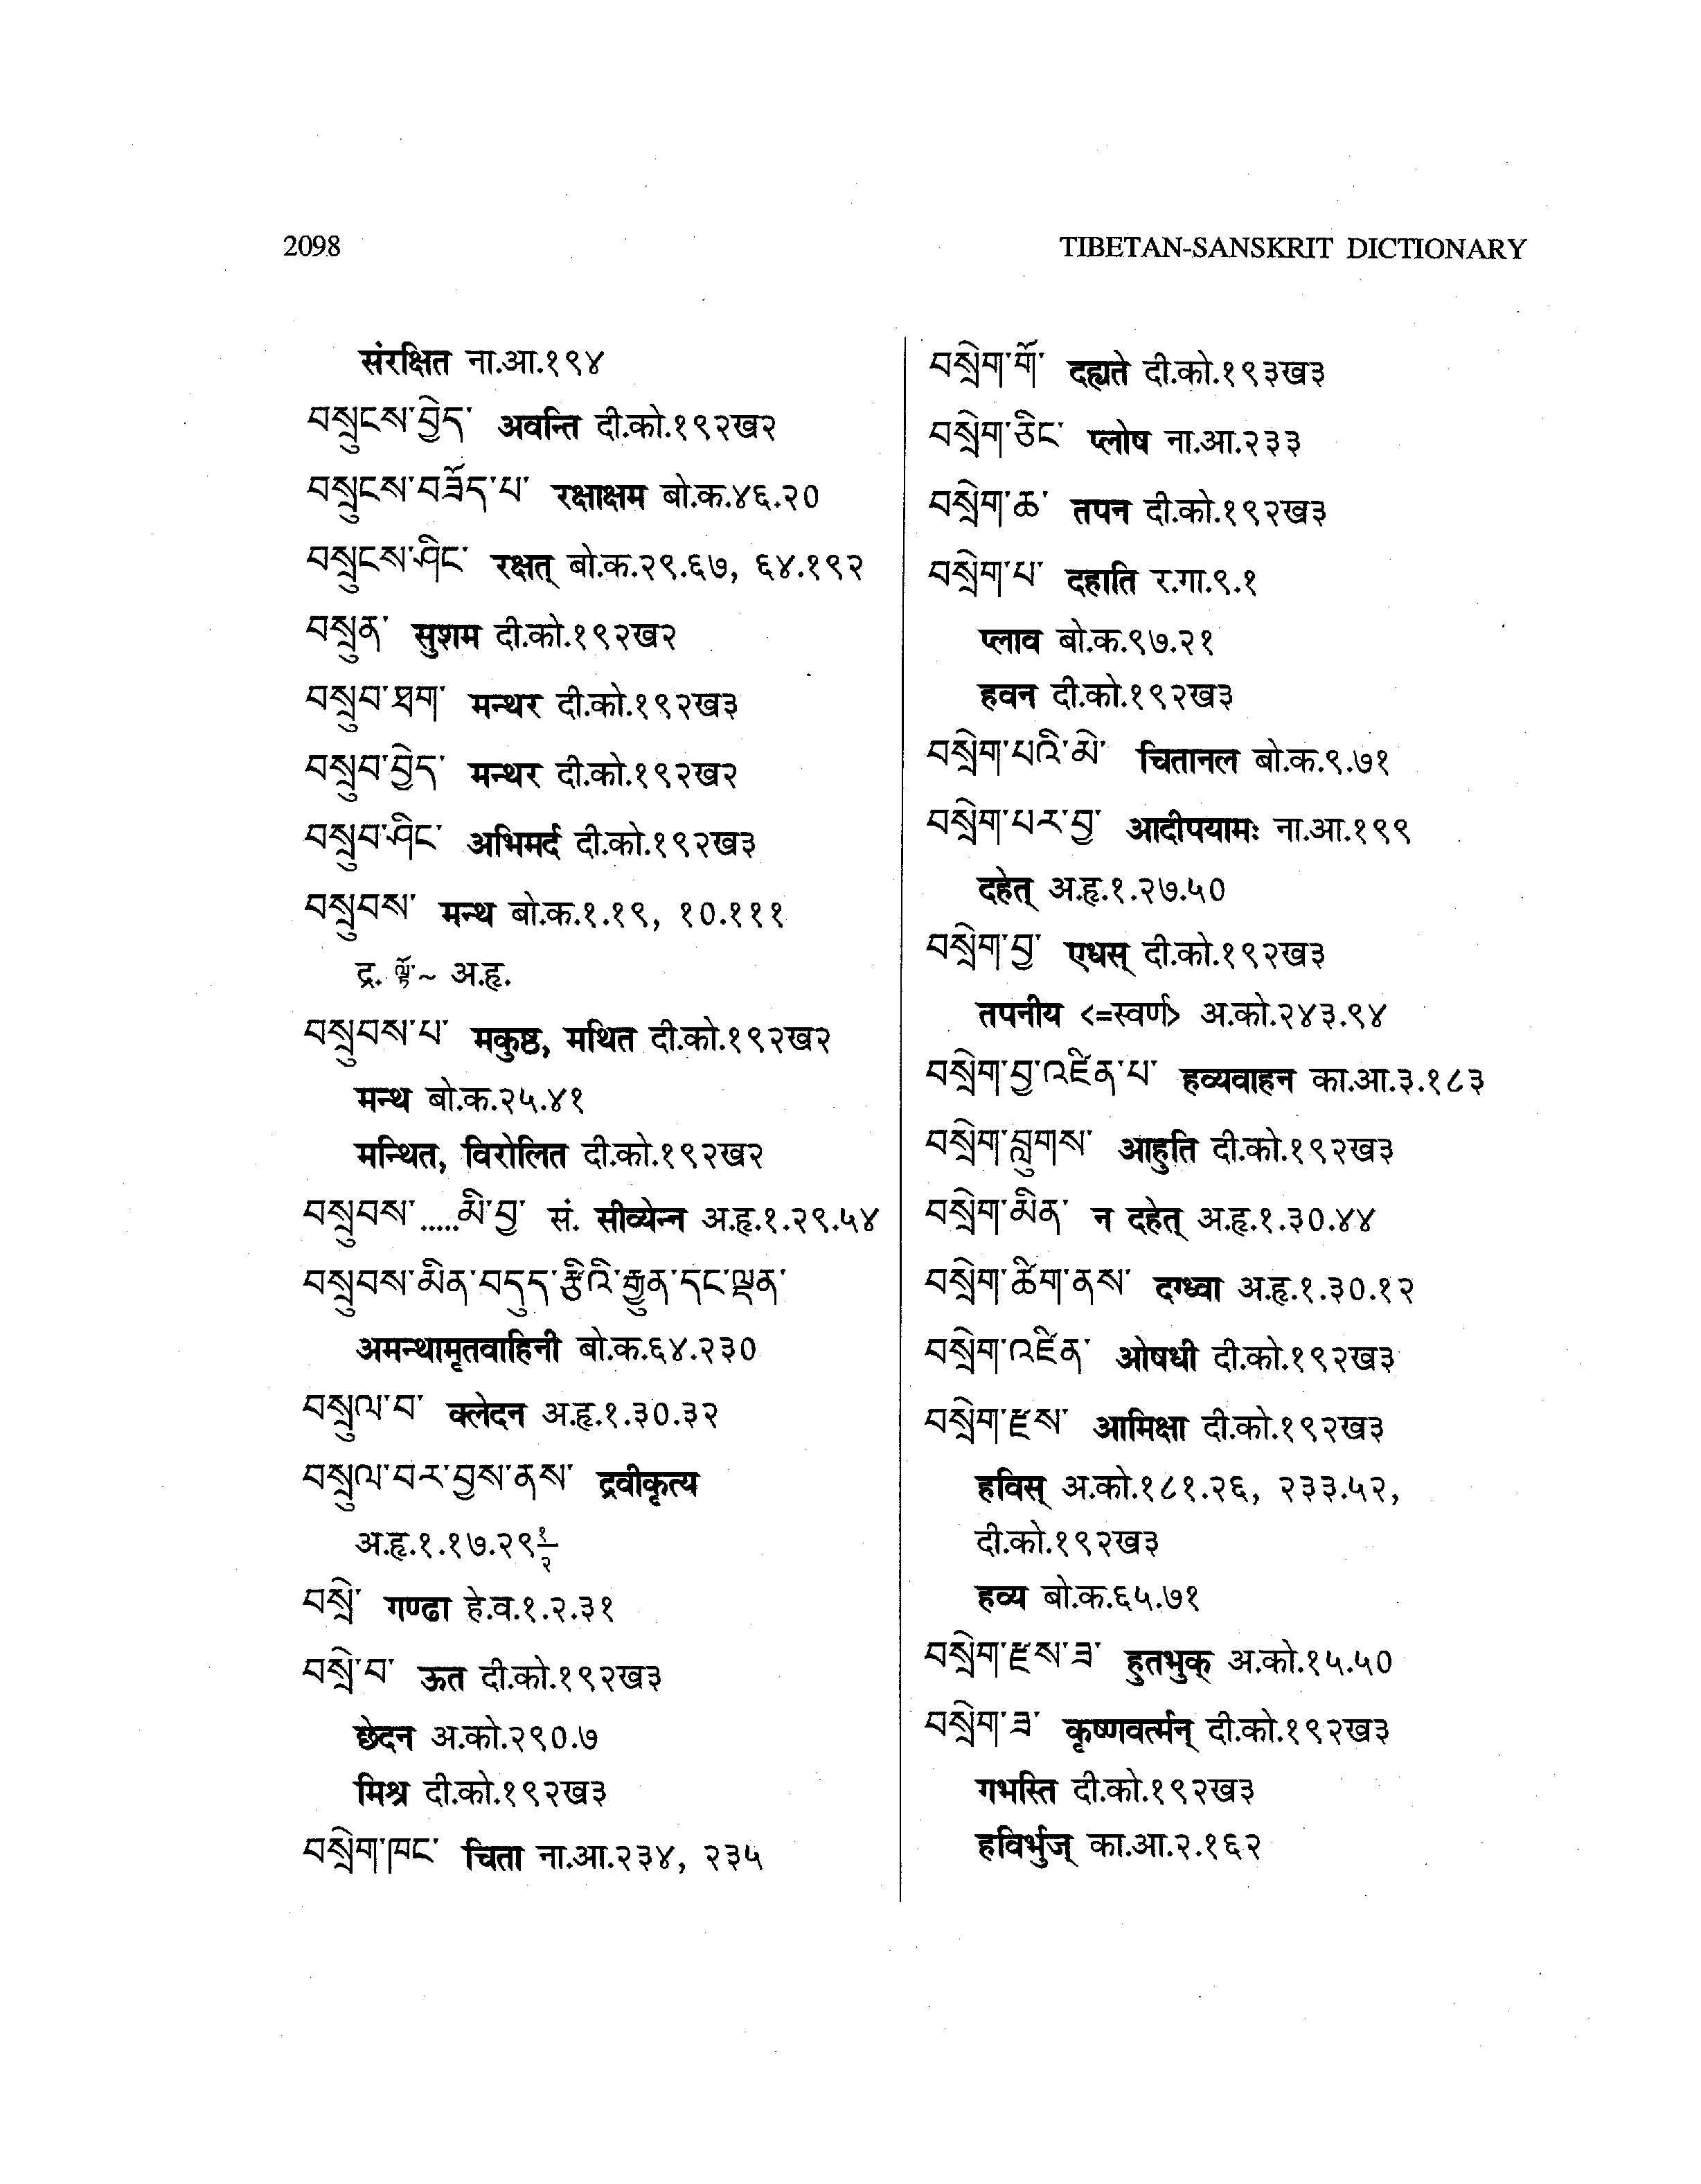 2098
TIBETAN-SANSKRIT DICTIONARY
संरक्षित ना.आ.१९४
བསྲུངས་བྱེད་ अवन्ति दी.को.१९२ख२
བསྲུངས་བཟོད་པ་ रक्षाक्षम बो.क.४६.२०
བསྲུངས་ཤིང་ रक्षत् बो.क.२९.६७, ६४.१९२
བསྲུན་ सुशम दी.को.१९२ख२
བསྲུབ་ཐག་ मन्थर दी.को.१९२ख३
བསྲུབ་བྱེད་ मन्थर दी.को.१९२ख२
བསྲུབ་ཤིང་ अभिमर्द दी.को.१९२ख३
བསྲུབས་ मन्थ बो.क.१.१९, १०.१११
द्र. ~ अ.हृ.
བསྲུབས་པ་ मकुष्ठ, मथित दी.को.१९२ख२
मन्थ बो.क.२५.४१
मन्थित, विरोलित दी.को.१९२ख२
བསྲུབས་.....མི་བྱ་ सं. सीव्येन्न अ.हृ.१.२९.५४
བསྲུབས་མིན་བདུད་རྩིའི་རྒྱུན་དང་ལྡན་
अमन्थामृतवाहिनी बो.क.६४.२३०
བསྲུལ་བ་ क्लेदन अ.हृ.१.३०.३२
བསྲུལ་བར་བྱས་ནས་ द्रवीकृत्य
अ.हृ.१.१७.२९१/२
བསྲེ་ गण्ढा हे.व.१.२.३१
བསྲེ་བ་ ऊत दी.को.१९२ख३
छेदन अ.को.२९०.७
मिश्र दी.को.१९२ख३
བསྲེག་ཁང་ चिता ना.आ.२३४, २३५
བསྲེག་གོ་ दह्यते दी.को.१९३ख३
བསྲེག་ཅིང་ प्लोष ना.आ.२३३
བསྲེག་ཆ་ तपन दी.को.१९२ख३
བསྲེག་པ་ दहाति र.गा.९.१
प्लाव बो.क.९७.२१
हवन दी.को.१९२ख३
བསྲེག་པའི་མེ་ चितानल बो.क.९.७१
བསྲེག་པར་བྱ་ आदीपयामः ना.आ.१९९
दहेत् अ.हृ.१.२७.५०
བསྲེག་བྱ་ एधस् दी.को.१९२ख३
तपनीय <=स्वर्ण> अ.को.२४३.९४
བསྲེག་བྱ་འཛིན་པ་ हव्यवाहन का.आ.३.१८३
བསྲེག་བླུགས་ आहुति दी.को.१९२ख३
བསྲེག་མིན་ न दहेत् अ.हृ.१.३०.४४
བསྲེག་ཚིག་ནས་ दग्ध्वा अ.हृ.१.३०.१२
བསྲེག་འཛིན་ ओषधी दी.को.१९२ख३
བསྲེག་རྫས་ आमिक्षा दी.को.१९२ख३
हविस् अ.को.१८१.२६, २३३.५२,
दी.को.१९२ख३
हव्य बो.क.६५.७१
བསྲེག་རྫས་ཟ་ हुतभुक् अ.को.१५.५०
བསྲེག་ཟ་ कृष्णवर्त्मन् दी.को.१९२ख३
गभस्ति दी.को.१९२ख३
हविर्भुज् का.आ.२.१६२